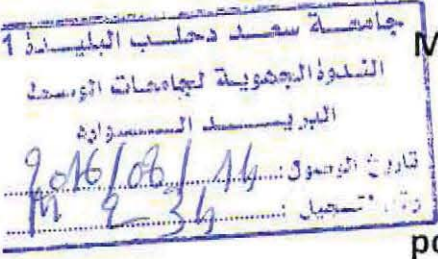 جامعة سعد دحلب البليدة 1
الندوة الجهوية لجامعات الوسط
البريد الوارد
تاريخ الوصول: 2016/06/14
رقم التسجيل: 234
M
po